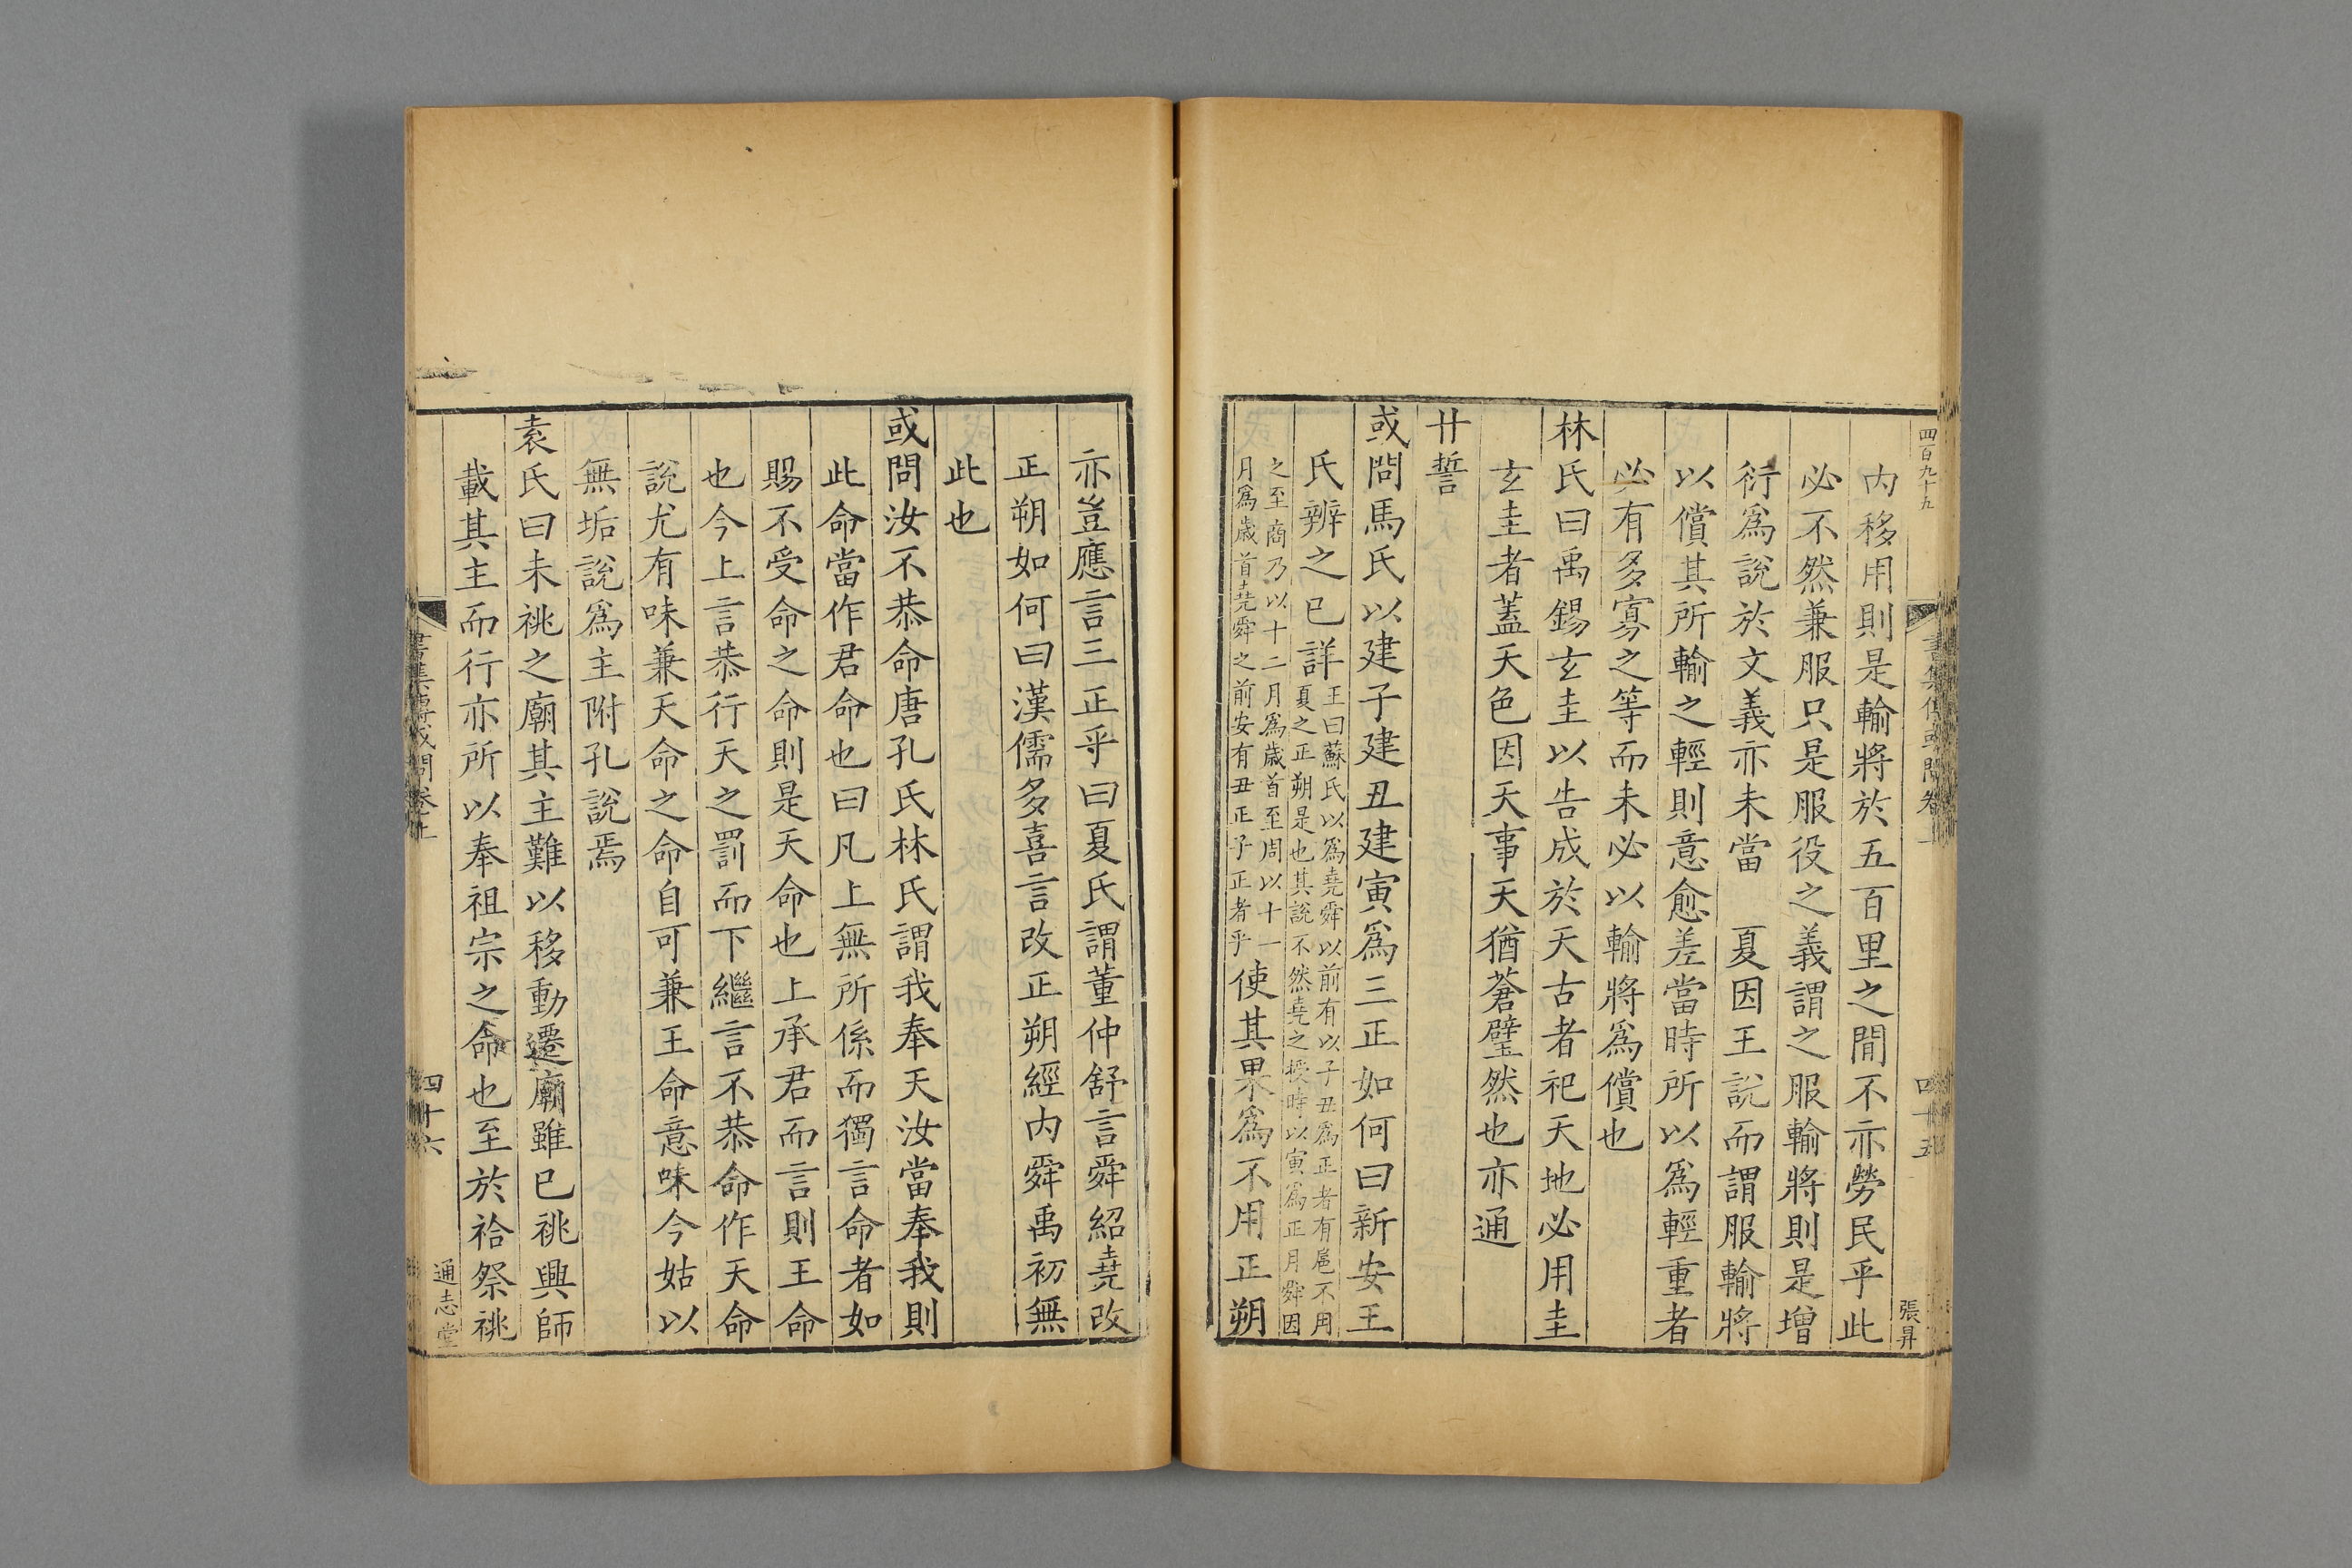 四百九十九
書集傳或問卷上
四十五
張昇
内移用則是輸將於五百里之閒不亦勞民乎此
必不然兼服只是服役之義謂之服輸將則是增
衍爲說於文義亦未當　夏因王說而謂服輸將
以償其所輸之輕則意愈差當時所以爲輕重者
必有多寡之等而未必以輸將爲償也
林氏曰禹錫玄圭以告成於天古者祀天地必用圭
玄圭者蓋天色因天事天猶蒼璧然也亦通
甘誓
或問馬氏以建子建丑建寅爲三正如何曰新安王
氏辨之已詳
王曰蘇氏以爲堯舜以前有以子丑爲正者有扈不用
夏之正朔是也其說不然堯之授時以寅爲正月舜因
之至商乃以十二月爲歲首至周以十一
月爲歲首堯舜之前安有丑正子正者乎
使其果爲不用正朔
亦豈應言三正乎曰夏氏謂董仲舒言舜紹堯改
正朔如何曰漢儒多喜言改正朔經内舜禹初無
此也
或問汝不恭命唐孔氏林氏謂我奉天汝當奉我則
此命當作君命也曰凡上無所係而獨言命者如
賜不受命之命則是天命也上承君而言則王命
也今上言恭行天之罰而下繼言不恭命作天命
說尤有味兼天命之命自可兼王命意味今姑以
無垢說爲主附孔說焉
袁氏曰未祧之廟其主難以移動遷廟雖已祧興師
載其主而行亦所以奉祖宗之命也至於祫祭祧
書集傳或問卷上
四十六
通志堂